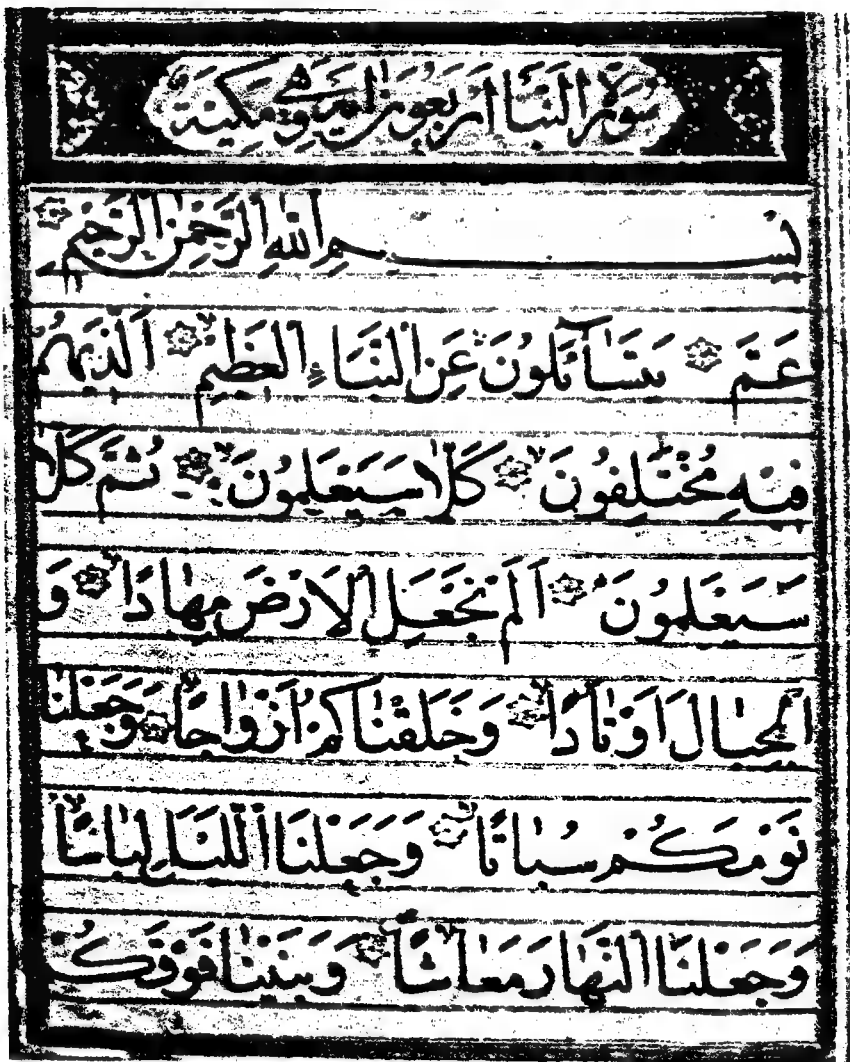 سُورَةُ النَّبَأِ أَرْبَعُونَ آيَةً وَهِيَ مَكِّيَّةٌ
بِسْمِ اللّٰهِ الرَّحْمٰنِ الرَّحِيمِ
عَمَّ يَتَسَآءَلُونَ عَنِ النَّبَاءِ الْعَظِيمِ اَلَّذِيهُمْ
فِيهِ مُخْتَلِفُونَ كَلَّا سَيَعْلَمُونَ ثُمَّ كَلَّا
سَيَعْلَمُونَ اَلَمْ نَجْعَلِ الْاَرْضَ مِهَادًا وَ
الْجِبَالَ اَوْتَادًا وَخَلَقْنَاكُمْ اَزْوَاجًا وَجَعَلْنَا
نَوْمَكُمْ سُبَاتًا وَجَعَلْنَا الَّيْلَ لِبَاسًا
وَجَعَلْنَا النَّهَارَ مَعَاشًا وَبَنَيْنَا فَوْقَكُمْ